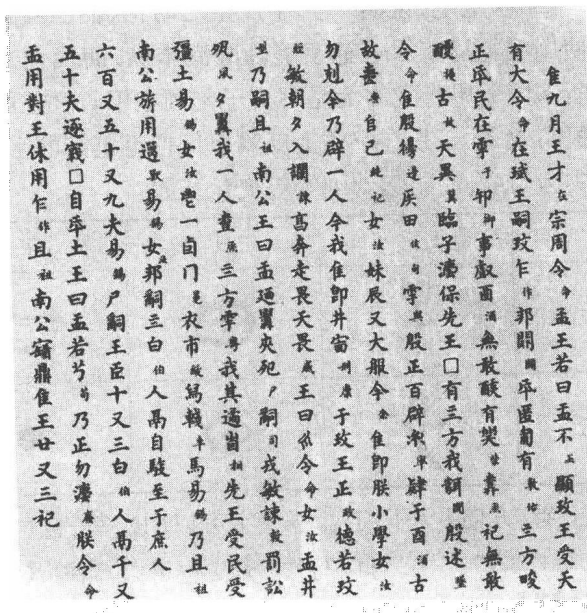 隹九月王才在宗周令命盂王若曰盂不丕顯玟王受天
有大令命在珷王嗣玟乍作邦闢闢氒匿匍有敷佑三方畯
正氒民在雩于卸御事䖒酉酒無敢酖有祡蒸祀無敢
醻古故天異翼臨子灋保先王□有三方我聞聞殷述墜
令命隹殷邊侯田侯甸雩與殷正百辟率肄于酉酒古
故喪𠂤己純祀女汝妹辰又大服余隹卽朕小學女汝
勿剋余乃辟一人今我隹卽井㐭刑廩于玟王正政德若玟
巠敏朝夕入讕諫亯奔走畏天畏威王曰令命女汝盂井
型乃嗣且祖南公王曰盂廼夾死尸嗣司戎敏諫敕罰訟
夙夕我一人烝三方雩粤我其遹省相先王受民受
彊土易錫女汝鬯一卣冂冕衣市韍舄車馬易錫乃且祖
南公旂用遛獸易錫女汝邦嗣三白伯人鬲自馭至于庶人
六百又五十又九夫易錫尸嗣王臣十又三白伯人鬲千又
五十夫逐寰□自氒土王曰盂若芍苟乃正勿灋廢朕令命
盂用對王休用乍作且祖南公寶鼎隹王廿又三祀